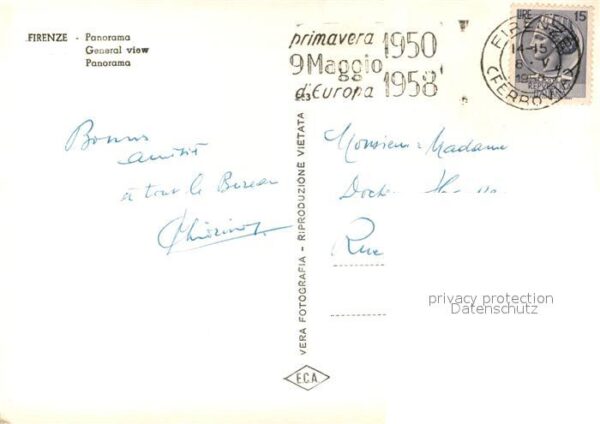 FIRENZE - Panorama
General view
Panorama
primavera 1950
9 Maggio
d'Europa 1958
LIRE 15
FIRENZE
14-15
(FERROVIA)
Bonnes
amitiés
à tout le Bureau
Monsieur Madame
Docteur
Rue
VERA FOTOGRAFIA - RIPRODUZIONE VIETATA
E.C.A.
privacy protection
Datenschutz